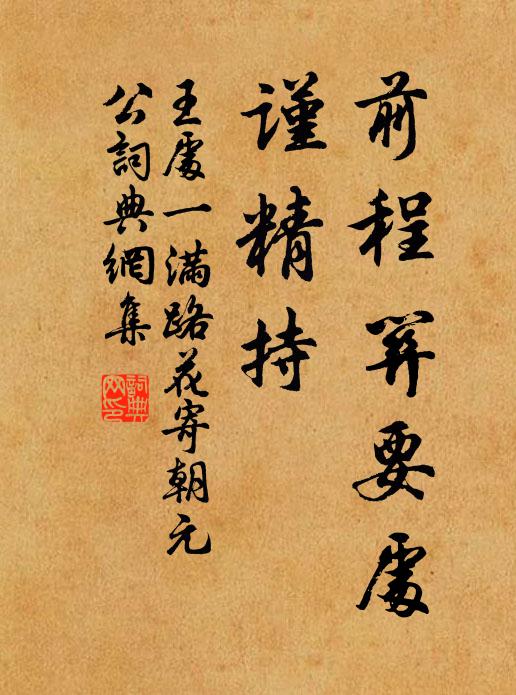 前程關要處
謹精持
王處一滿路花寄朝元
公詞典網集
詞典
网印